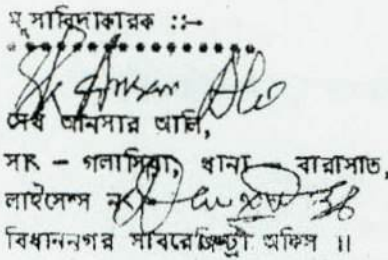 মুসাবিদাকারক ::-
Sk Ansar Ali
সেখ আনসার আলি,
সাং - গলাসিয়া, থানা - বারাসাত,
লাইসেন্স নং
বিধাননগর সাবরেজিস্ট্রী অফিস ॥